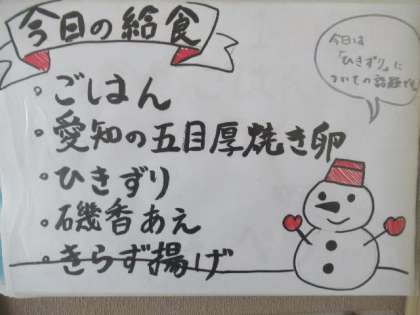 今日の給食
・ごはん
・愛知の五目厚焼き卵
・ひきずり
・磯香あえ
・きらず揚げ
今日は
「ひきずり」に
ついての話題です。